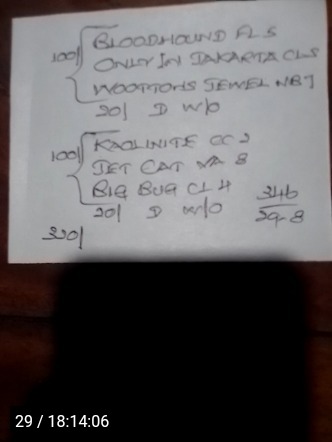 100/ BLOODHOUND FL 5
ONLY IN JAKARTA CL 5
WOOTTONS JEWEL NB 7
20/ D W/O
100/ KAOLINITE CC 2
JET CAT VA 8
BIG BUG CL 4
20/ D W/O
346
29-8
320/
29 / 18:14:06